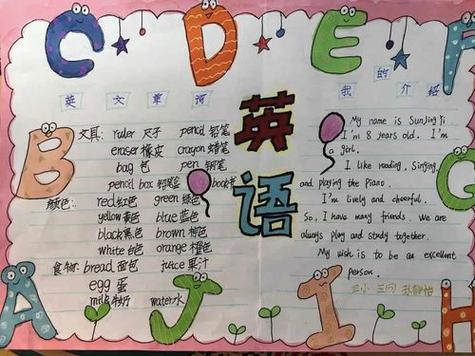 C D E F
英文单词
文具: ruler 尺子 pencil 铅笔
eraser 橡皮 crayon 蜡笔
bag 包 pen 钢笔
pencil box 铅笔盒 book 书
颜色: red 红色 green 绿色
yellow 黄色 blue 蓝色
black 黑色 brown 棕色
white 白色 orange 橙色
食物: bread 面包 juice 果汁
egg 蛋
milk 牛奶 water 水
英语
我的介绍
My name is SunJingYi
I'm 8 years old. I'm
a girl.
I like reading, Singing,
and playing the Piano.
I'm lively and cheerful.
So, I have many friends. We are
always play and study together.
My wish is to be an excellent
person.
B
G
A J I H